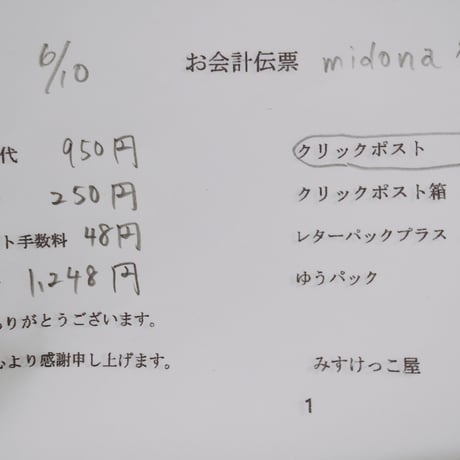 6/10 お会計伝票 midona
代 950円 クリックポスト
250円 クリックポスト箱
ト手数料 48円 レターパックプラス
1,248円 ゆうパック
ありがとうございます。
心より感謝申し上げます。 みすけっこ屋
1